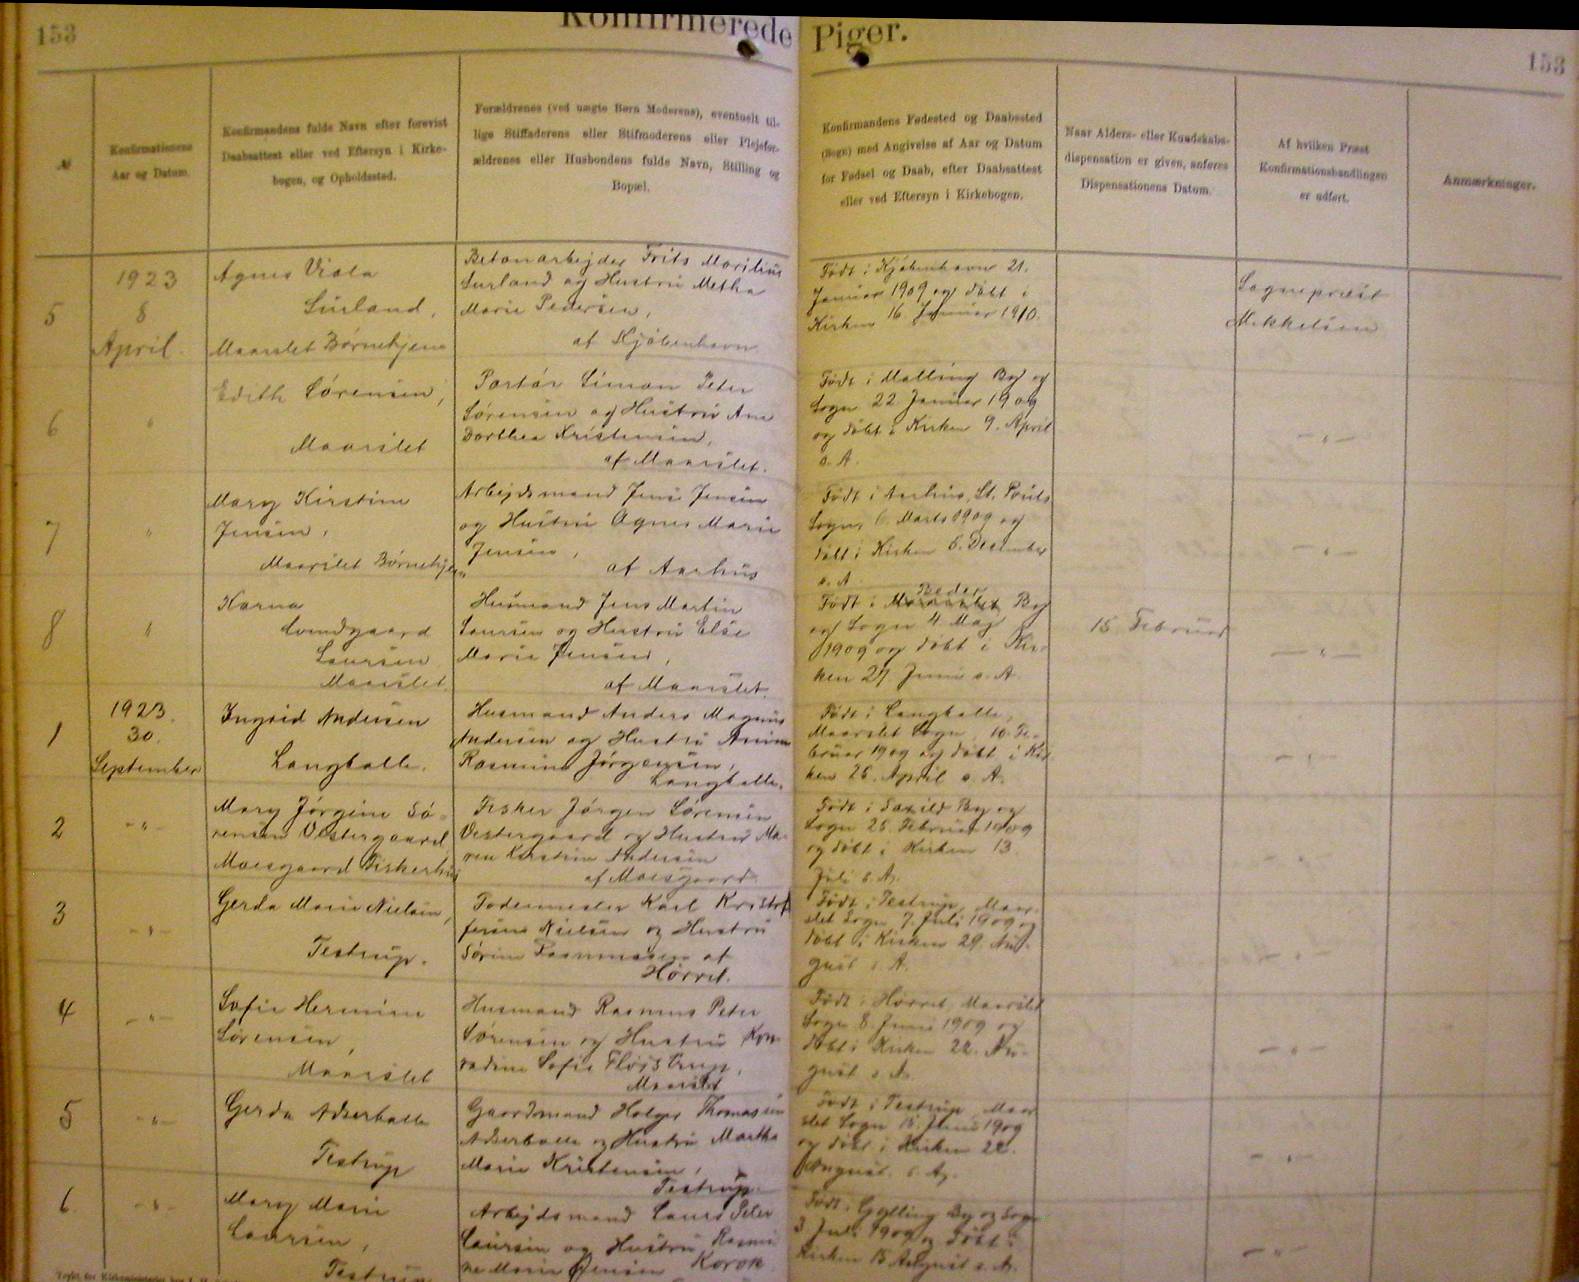 153
Konfirmerede Piger.
153
№
Konfirmationens
Aar og Datum.
Konfirmandens fulde Navn efter forevist
Daabsattest eller ved Eftersyn i Kirke-
bogen, og Opholdssted.
Forældrenes (ved uægte Børn Moderens), eventuelt til-
lige Stiffaderens eller Stifmoderens eller Plejefor-
ældrenes eller Husbondens fulde Navn, Stilling og
Bopæl.
Konfirmandens Fødested og Daabssted
(Sogn) med Angivelse af Aar og Datum
for Fødsel og Daab, efter Daabsattest
eller ved Eftersyn i Kirkebogen.
Naar Alders- eller Kundskabs-
dispensation er given, anføres
Dispensationens Datum.
Af hvilken Præst
Konfirmationshandlingen
er udført.
Anmærkninger.
5
1923
8
April.
Agnes Viola
Surland,
Maarslet Børnehjem
Betonarbejder Frits Moritius
Surland og Hustru Metha
Marie Pedersen,
af Kjøbenhavn
Født i Kjøbenhavn 21.
Januar 1909 og døbt i
Kirken 16 Januar 1910.
Sognepræst
Mikkelsen
6
"
Edith Sørensen,
Maarslet
Portør Simon Peter
Sørensen og Hustru Ane
Dorthea Kristensen,
af Maarslet.
Født i Malling By og
Sogn 22 Januar 1909
og døbt i Kirken 9. April
s. A.
— " —
7
"
Mary Kirstine
Jensen,
Maarslet Børnehjem
Arbejdsmand Jens Jensen
og Hustru Agnes Marie
Jensen,
af Aarhus
Født i Aarhus, St. Pouls
Sogn, 6. Marts 1909 og
døbt i Kirken 6. December
s. A.
— " —
8
"
Karna
Svendgaard
Laursen
Maarslet.
Husmand Jens Martin
Laursen og Hustru Else
Marie Jensen,
af Maarslet.
Beder
Født i Maarslet By
og Sogn 4. Maj
1909 og døbt i Kir-
ken 27 Juni s. A.
15 Februar
— " —
1
1923.
30.
September
Ingrid Andersen
Langballe.
Husmand Anders Magnus
Andersen og Hustru
Rasmine Jørgensen,
Langballe.
Født i Langballe,
Maarslet Sogn, 10. Fe-
bruar 1909 og døbt i Kir-
ken 25. April s. A.
— " —
2
— " —
Mary Jørgine Sø-
rensen Vestergaard
Moesgaard Fiskerhus
Fisker Jørgen Sørensen
Vestergaard og Hustru Ma-
ren Kirstine Andersen
af Moesgaard
Født i Saxild By og
Sogn 25. Februar 1909
og døbt i Kirken 13.
Juli s. A.
— " —
3
— " —
Gerda Marie Nielsen,
Testrup.
Fodermester Karl Kristof-
fersen Nielsen og Hustru
Sørine Rasmussen af
Hørret.
Født i Testrup, Maar-
slet Sogn 7. Juli 1909 og
døbt i Kirken 29. Au-
gust s. A.
— " —
4
— " —
Sofie Hermine
Sørensen,
Maarslet
Husmand Rasmus Peter
Sørensen og Hustru Kon-
radine Sofie Fløjstrup,
Maarslet
Født i Hørret, Maarslet
Sogn 8. Juni 1909 og
døbt i Kirken 22. Au-
gust s. A.
— " —
5
— " —
Gerda Adserballe
Testrup
Gaardmand Holger Thomassen
Adserballe og Hustru Martha
Marie Kristensen,
Testrup.
Født i Testrup, Maar-
slet Sogn 15. Juni 1909
og døbt i Kirken 22.
August. s. A.
— " —
6
— " —
Mary Marie
Laursen,
Testrup
Arbejdsmand Laurs Peter
Laursen og Hustru Rasmi-
ne Marie Jensen
Født i Gylling By og Sogn
3. Juli 1909 og døbt i
Kirken 15 August s. A.
— " —